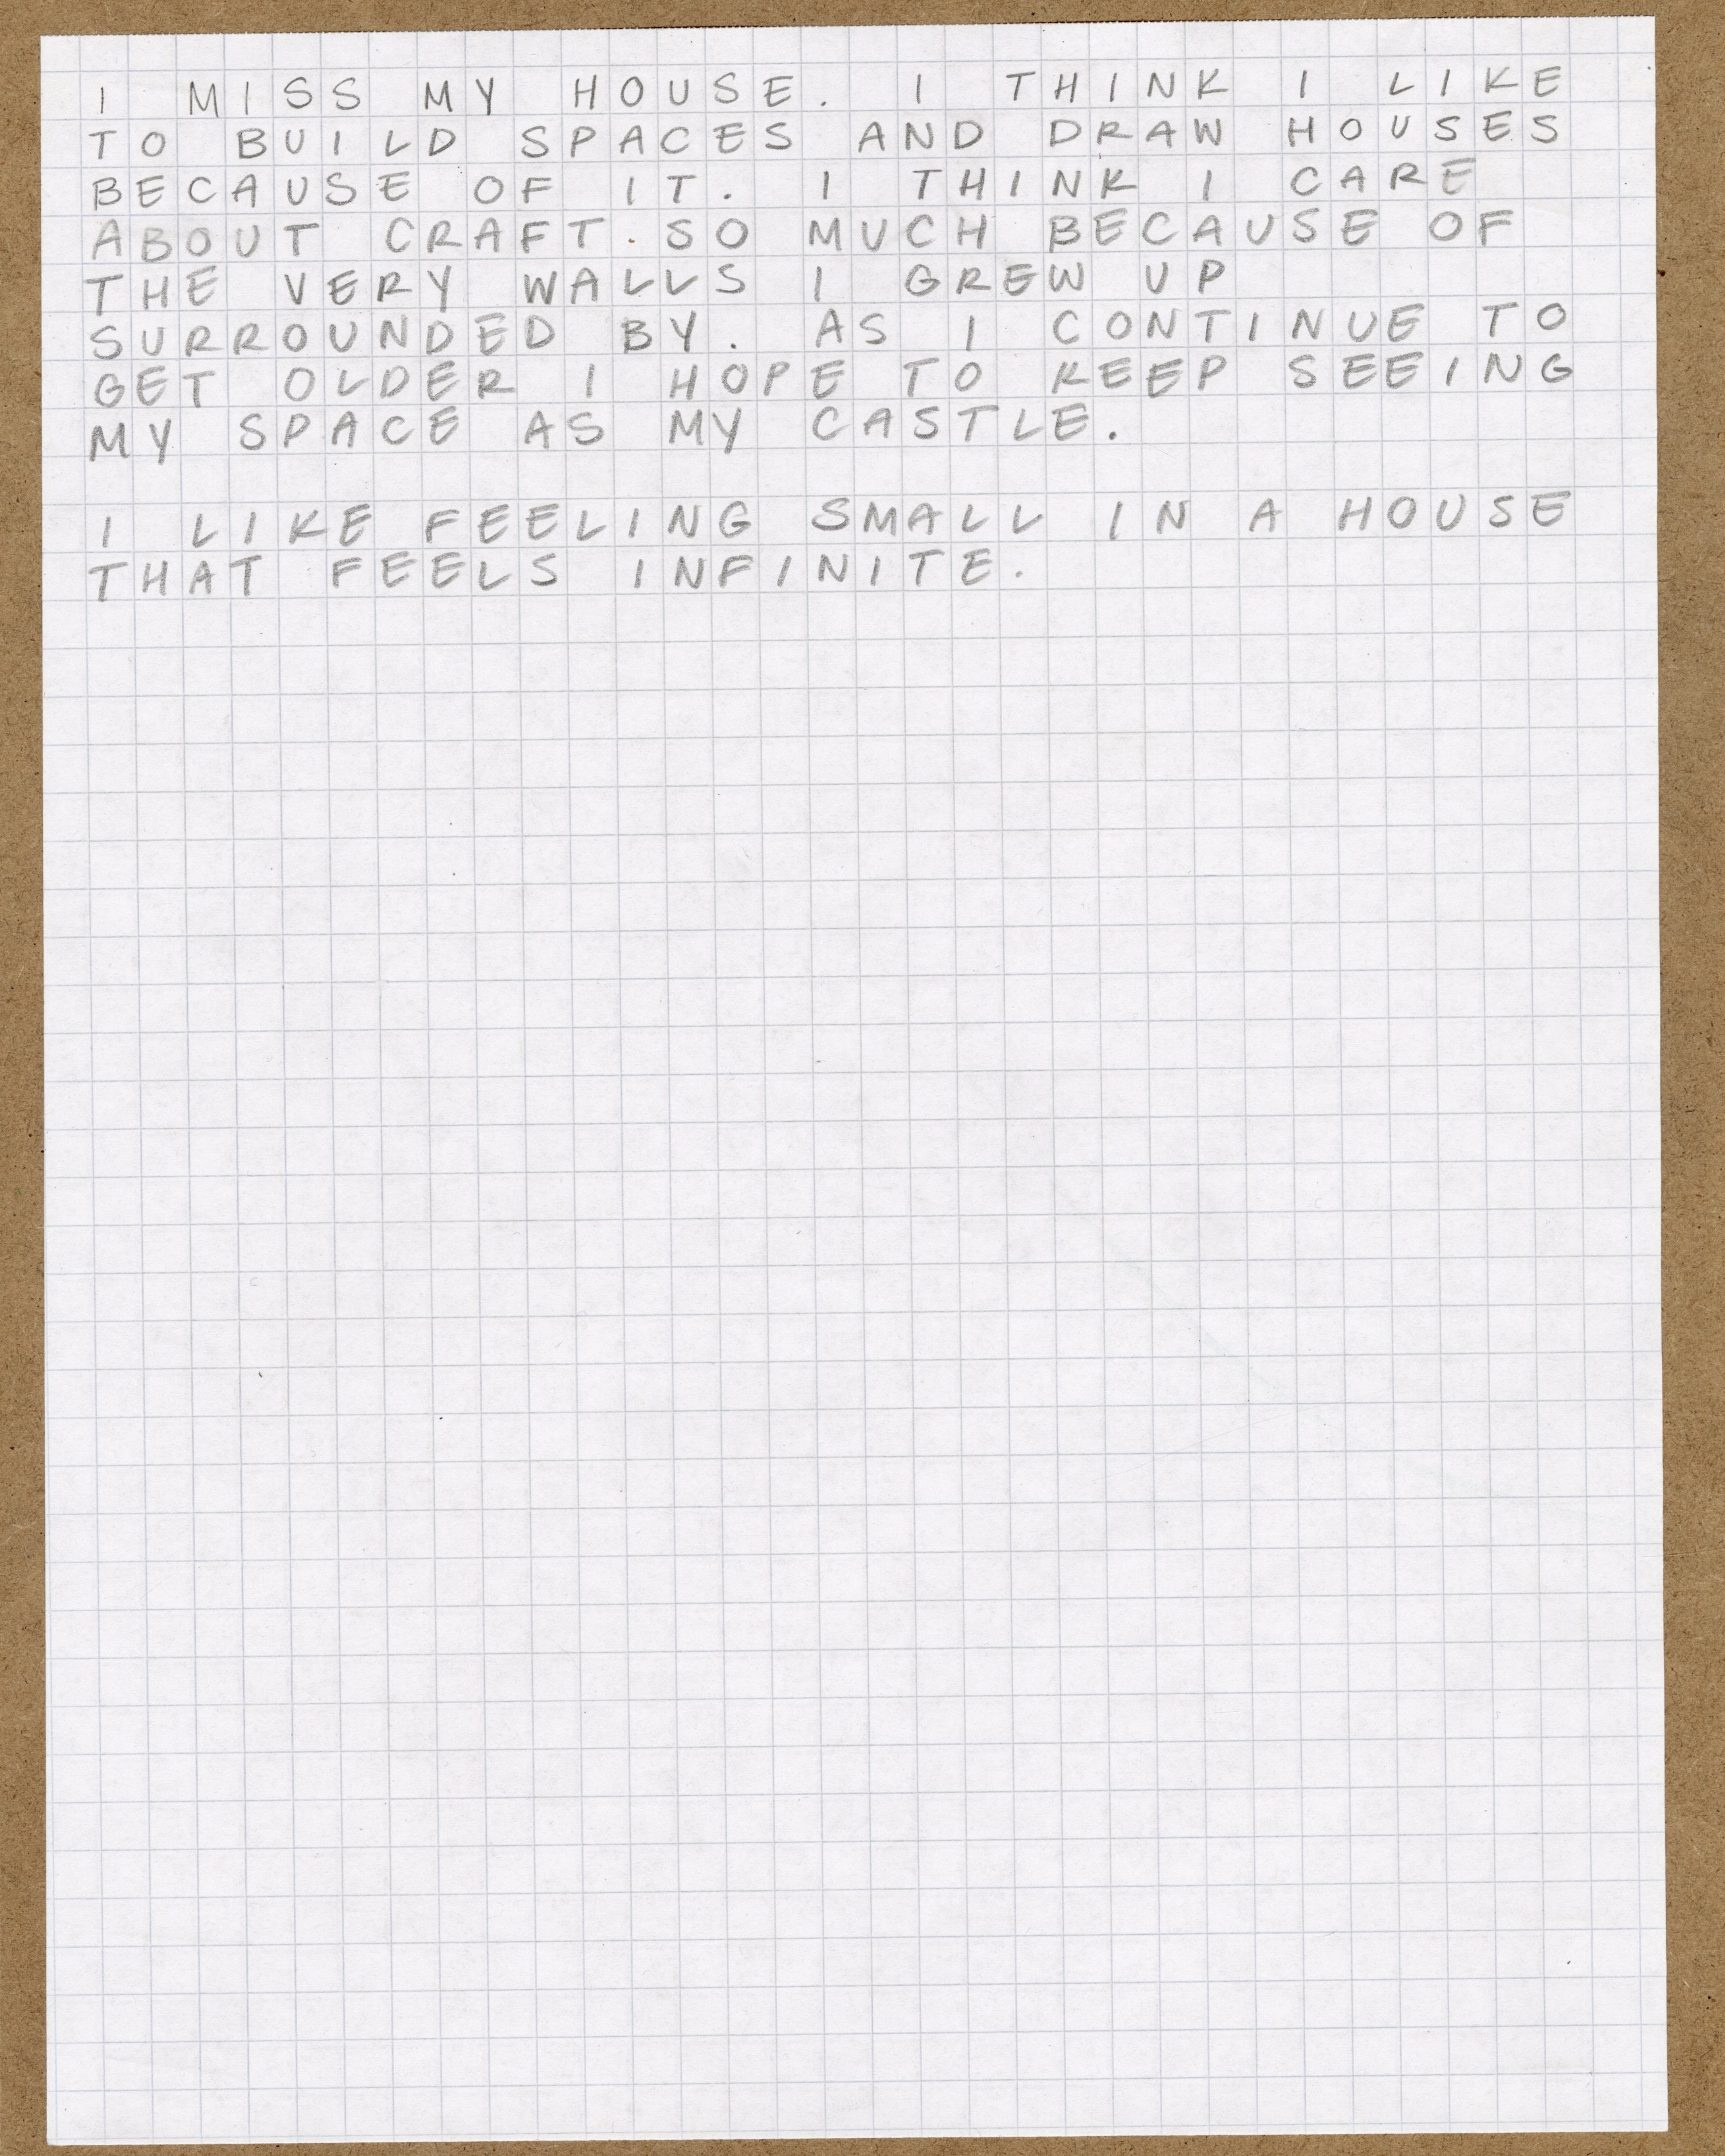 I MISS MY HOUSE. I THINK I LIKE
TO BUILD SPACES AND DRAW HOUSES
BECAUSE OF IT. I THINK I CARE
ABOUT CRAFT SO MUCH BECAUSE OF
THE VERY WALLS I GREW UP
SURROUNDED BY. AS I CONTINUE TO
GET OLDER I HOPE TO KEEP SEEING
MY SPACE AS MY CASTLE.
I LIKE FEELING SMALL IN A HOUSE
THAT FEELS INFINITE.